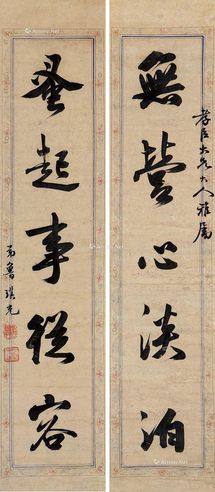 孝臣大兄大人雅属
無營心淡泊
蚤起事從容
弟魯琪光